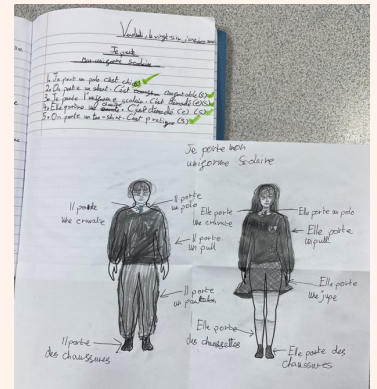 Vendredi, le vingt-six, janvier
Je porte
Mon uniforme scolaire
1. Je port un polo. C'est chic
2. On porte un short. C'est confortable (s)
3. Je porte l'uniforme scolaire. C'est démodé (e) (s)
4. Elle porte C'est démodé (e) (s)
5. On porte un tee-shirt. C'est pratique (s)
Je porte mon
uniforme scolaire
Il porte
une cravate
Il porte
un polo
Il porte
un pull
Il porte
un pantalon
Il porte
des chaussures
Elle porte
une cravate
Elle porte un polo
Elle porte
un pull
Elle porte
une jupe
Elle porte
des chaussettes
Elle porte des
chaussures